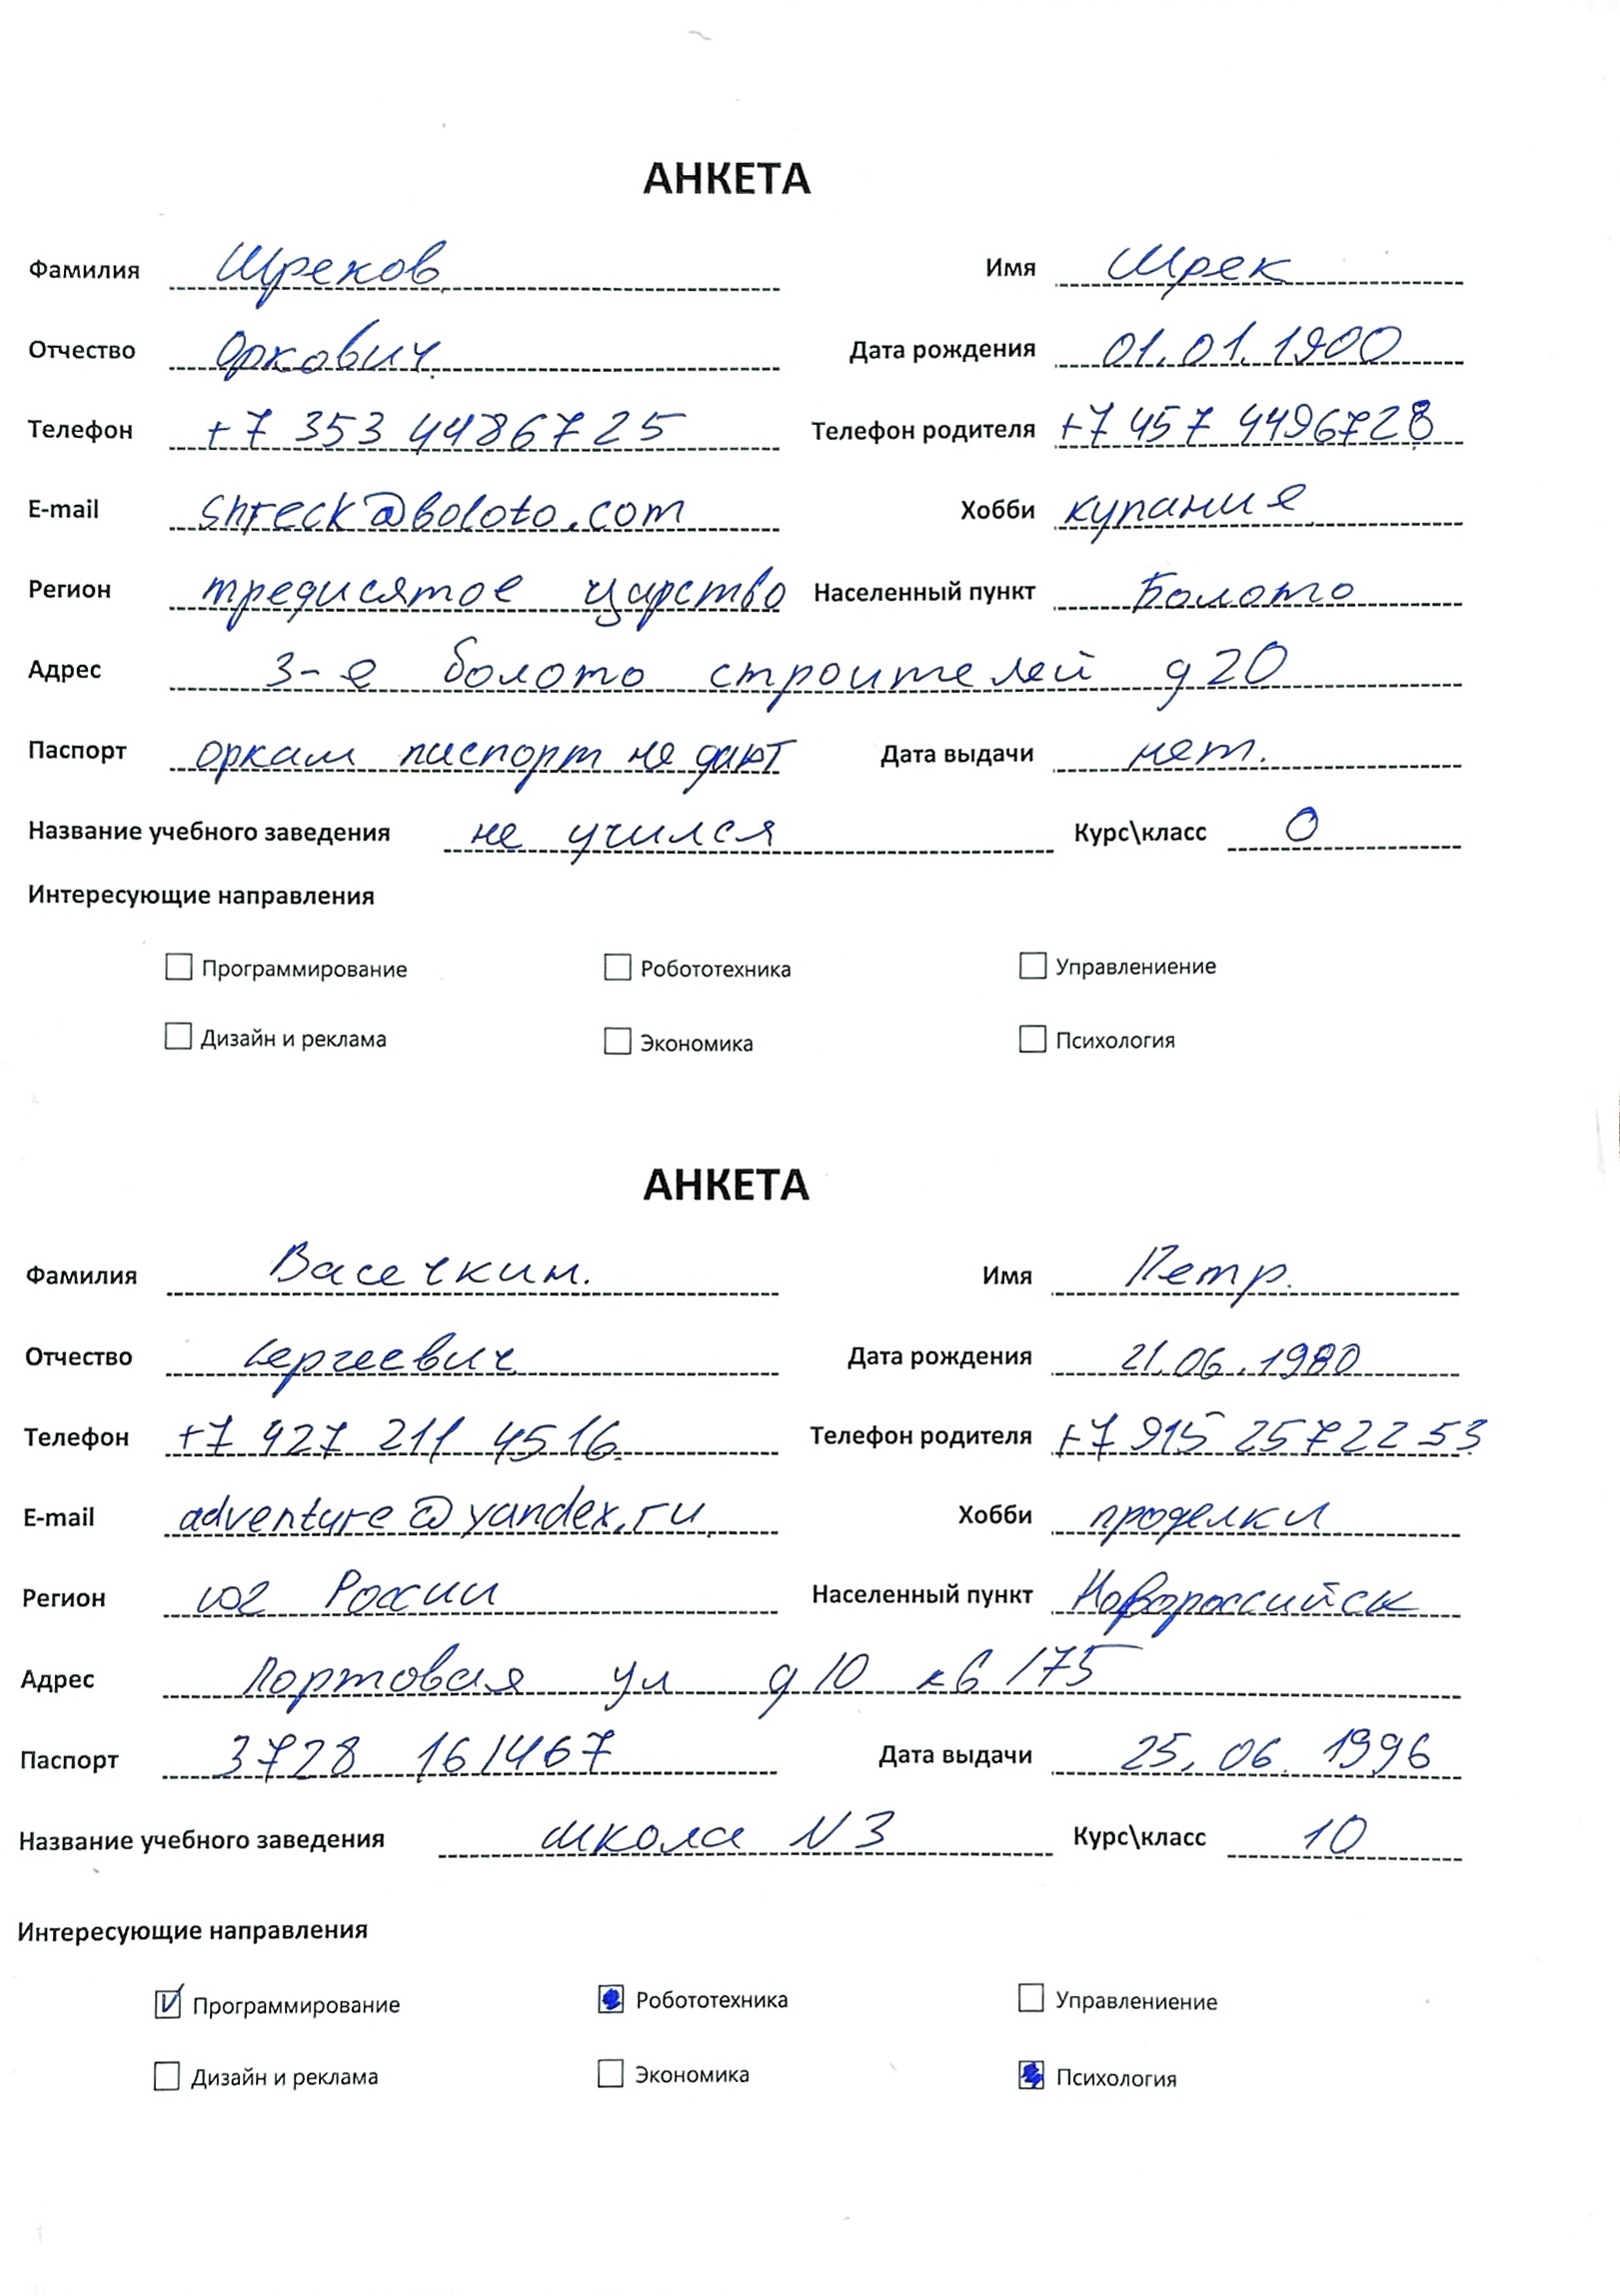 АНКЕТА
Фамилия Шреков Имя Шрек
Отчество Оркович. Дата рождения 01.01.1900
Телефон +7 353 4486725 Телефон родителя +7 457 4496728
E-mail Shreck@boloto.com Хобби купание
Регион тредисятое царство Населенный пункт Болото
Адрес 3-е болото строителей д 20
Паспорт оркам паспорт не дают Дата выдачи нет.
Название учебного заведения не учился Курс\класс 0
Интересующие направления
Программирование Робототехника Управлениение
Дизайн и реклама Экономика Психология
АНКЕТА
Фамилия Васечкин. Имя Петр.
Отчество Сергеевич Дата рождения 21.06.1980
Телефон +7 927 211 4516. Телефон родителя +7 915 257 22 53
E-mail adventure@yandex.ru Хобби проделки
Регион юг России Населенный пункт Новороссийск
Адрес Портовая ул д 10 кв 175
Паспорт 3728 161467 Дата выдачи 25.06.1996
Название учебного заведения школа N3 Курс\класс 10
Интересующие направления
Программирование Робототехника Управлениение
Дизайн и реклама Экономика Психология